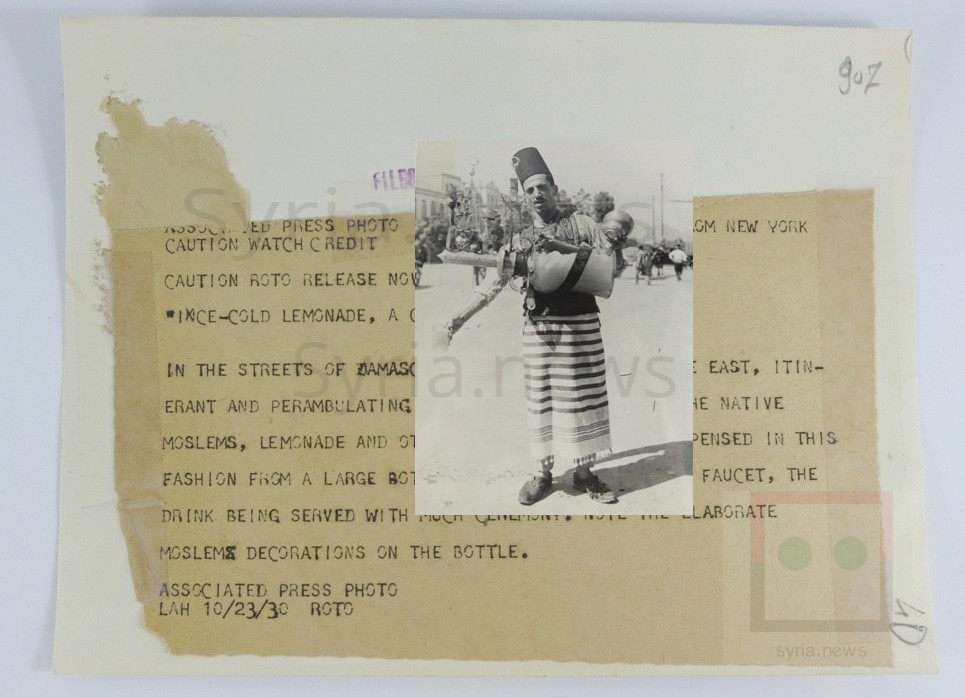 FILED
Syria.news
ASSOCIATED PRESS PHOTO OM NEW YORK
CAUTION WATCH CREDIT
CAUTION ROTO RELEASE NOW
"INCE-COLD LEMONADE, A
IN THE STREETS OF DAMASC E EAST, ITIN-
Syria.news
ERANT AND PERAMBULATING HE NATIVE
MOSLEMS, LEMONADE AND OT PENSED IN THIS
FASHION FROM A LARGE BOT FAUCET, THE
DRINK BEING SERVED WITH MUCH CEREMONY. NOTE THE ELABORATE
MOSLEMS DECORATIONS ON THE BOTTLE.
ASSOCIATED PRESS PHOTO
LAH 10/23/30 ROTO
syria.news